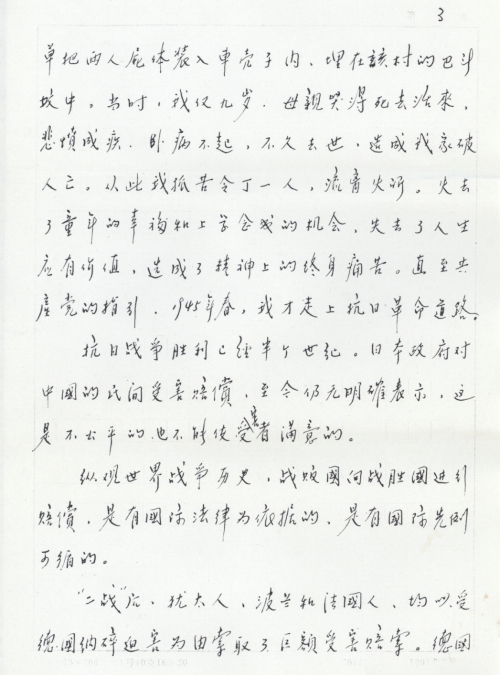 3
单把两人尸体装入車壳子内，埋在該村的巴斗
坟中。当时，我仅九岁．母親哭得死去活來，
悲愤成疾．卧病不起，不久去世，造成我家破
人亡。从此我孤苦令丁一人，流离失所。失去
了童年的幸福和上学念书的机会，失去了人生
应有价值，造成了精神上的终身痛苦。直至共
產党的指引．1945年春，我才走上抗日革命道路。
抗日战争胜利已经半个世纪。日本政府对
中國的民间受害赔償，至今仍无明確表示，这
是不公平的．也不能使受害者满意的。
纵观世界战争历史，战败國向战胜國進行
赔償，是有國际法律为依据的，是有國际先例
可循的。
"二战"后、犹太人、波兰和法國人、均以受
德國纳粹迫害为由索取了巨额受害赔索。德國